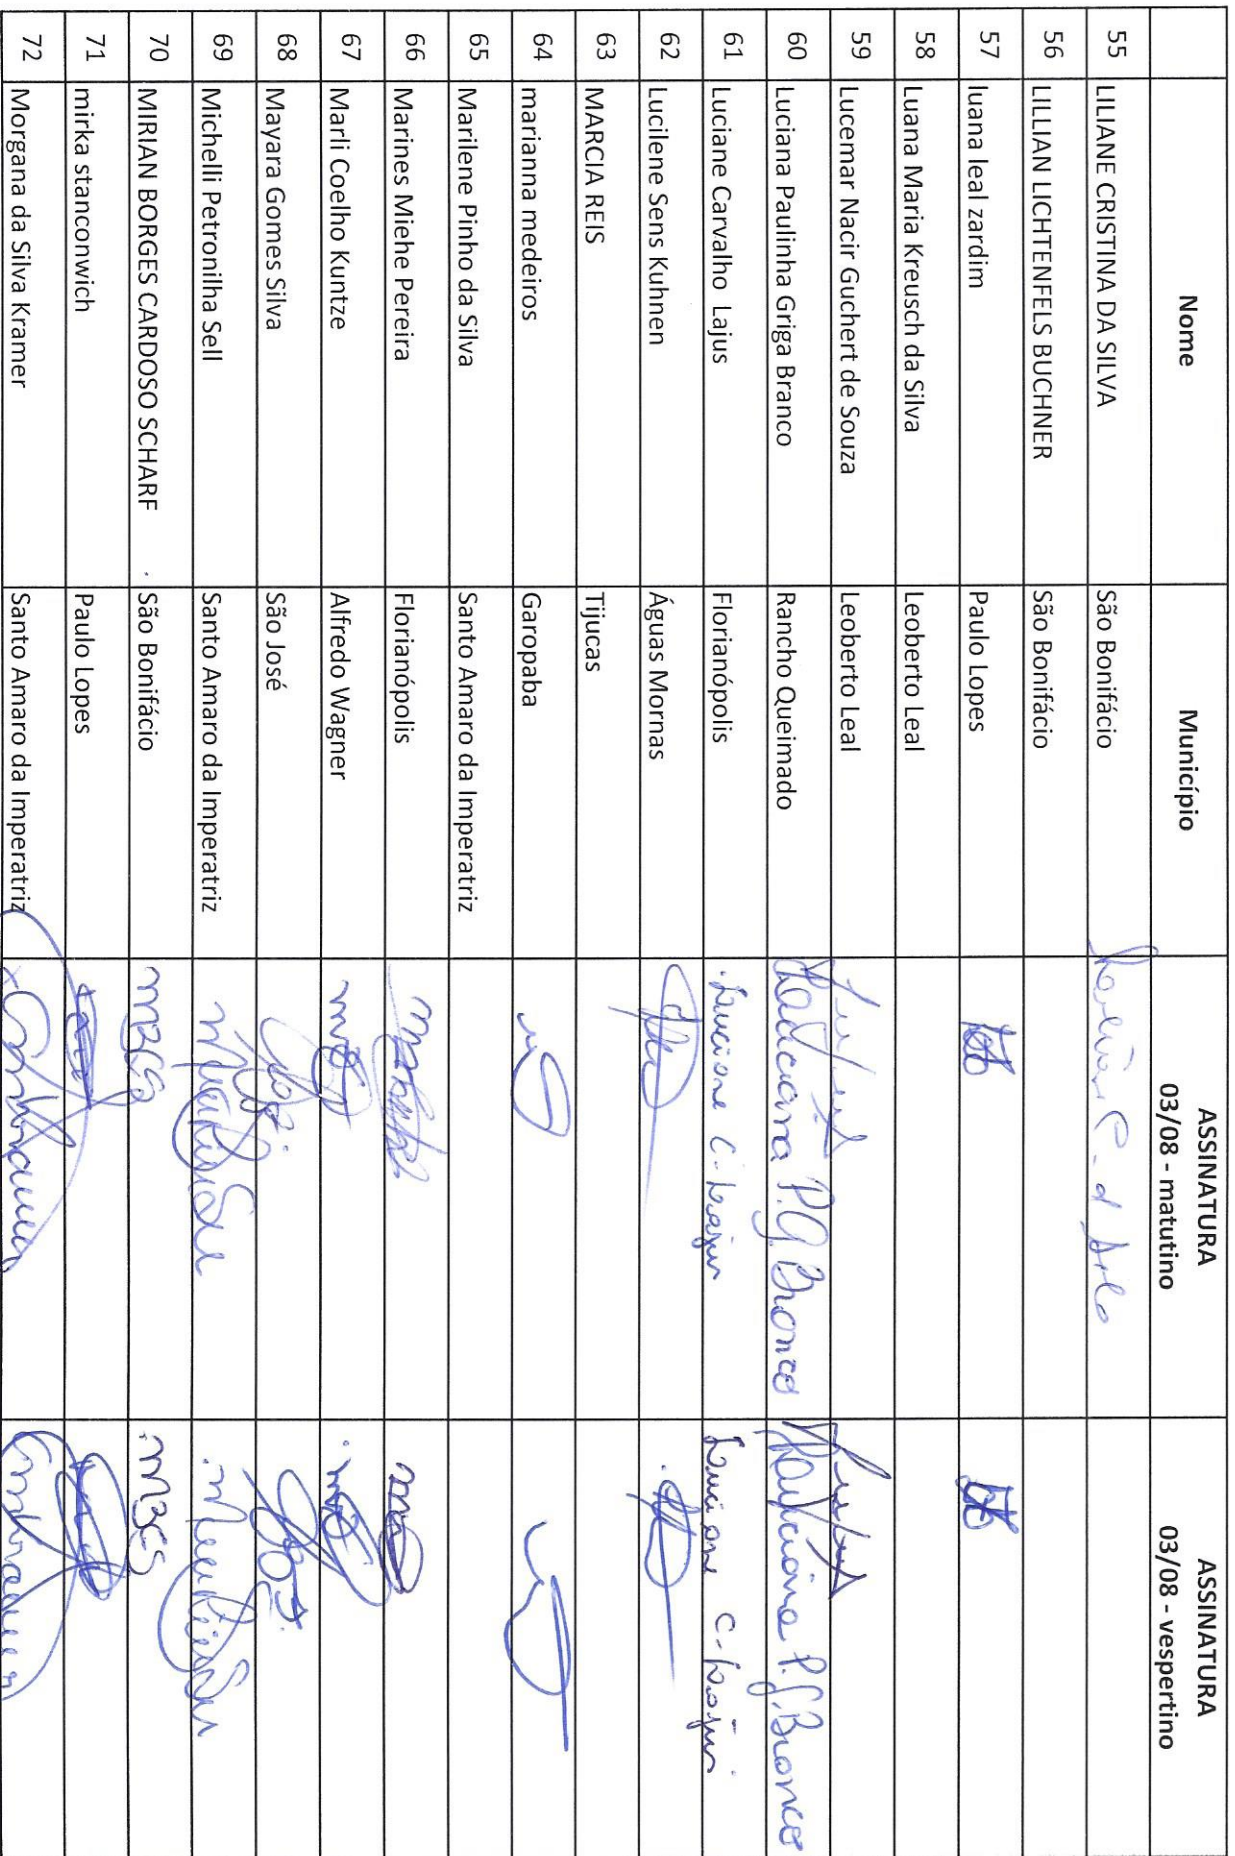 Nome Município ASSINATURA 03/08 - matutino ASSINATURA 03/08 - vespertino
55 LILIANE CRISTINA DA SILVA São Bonifácio
56 LILLIAN LICHTENFELS BUCHNER São Bonifácio
57 luana leal zardim Paulo Lopes
58 Luana Maria Kreusch da Silva Leoberto Leal
59 Lucemar Nacir Guchert de Souza Leoberto Leal
60 Luciana Paulinha Griga Branco Rancho Queimado Luciana P.G Branco Luciana P.G.Branco
61 Luciane Carvalho Lajus Florianópolis Luciane C. Lajus Luciane C. Lajus
62 Lucilene Sens Kuhnen Águas Mornas
63 MARCIA REIS Tijucas
64 marianna medeiros Garopaba
65 Marilene Pinho da Silva Santo Amaro da Imperatriz
66 Marines Miehe Pereira Florianópolis
67 Marli Coelho Kuntze Alfredo Wagner
68 Mayara Gomes Silva São José
69 Michelli Petronilha Sell Santo Amaro da Imperatriz
70 MIRIAN BORGES CARDOSO SCHARF São Bonifácio MBCS MBCS
71 mirka stanconwich Paulo Lopes
72 Morgana da Silva Kramer Santo Amaro da Imperatriz